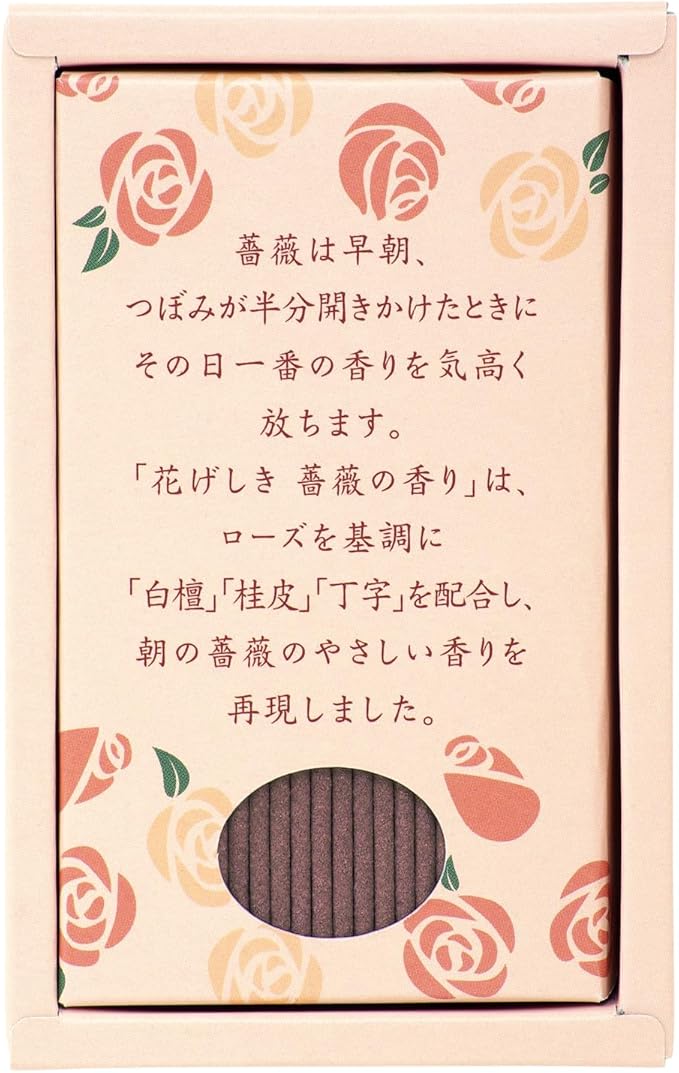 薔薇は早朝、
つぼみが半分開きかけたときに
その日一番の香りを気高く
放ちます。
「花げしき 薔薇の香り」は、
ローズを基調に
「白檀」「桂皮」「丁字」を配合し、
朝の薔薇のやさしい香りを
再現しました。